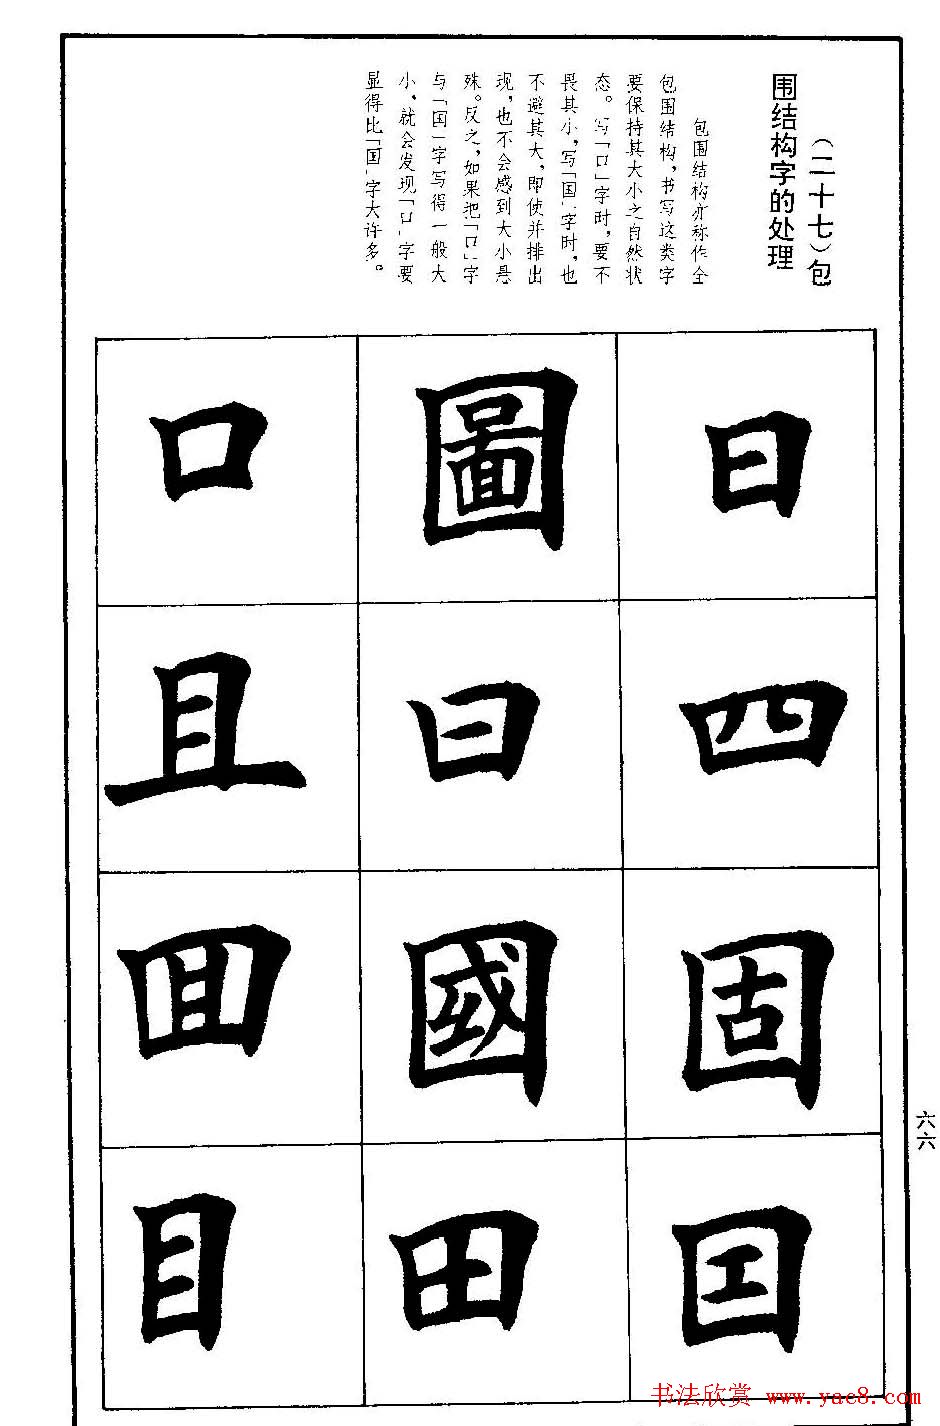 （二十七）包
围结构字的处理
包围结构亦称作全
包围结构，书写这类字
要保持其大小之自然状
态。写「口」字时，要不
畏其小，写「国」字时，也
不避其大，即使并排出
现，也不会感到大小悬
殊。反之，如果把「口」字
与「国」字写得一般大
小，就会发现「口」字要
显得比「国」字大许多。
日
四
固
圖
曰
國
田
口
且
囬
目
六六
书法欣赏 www.yac8.com